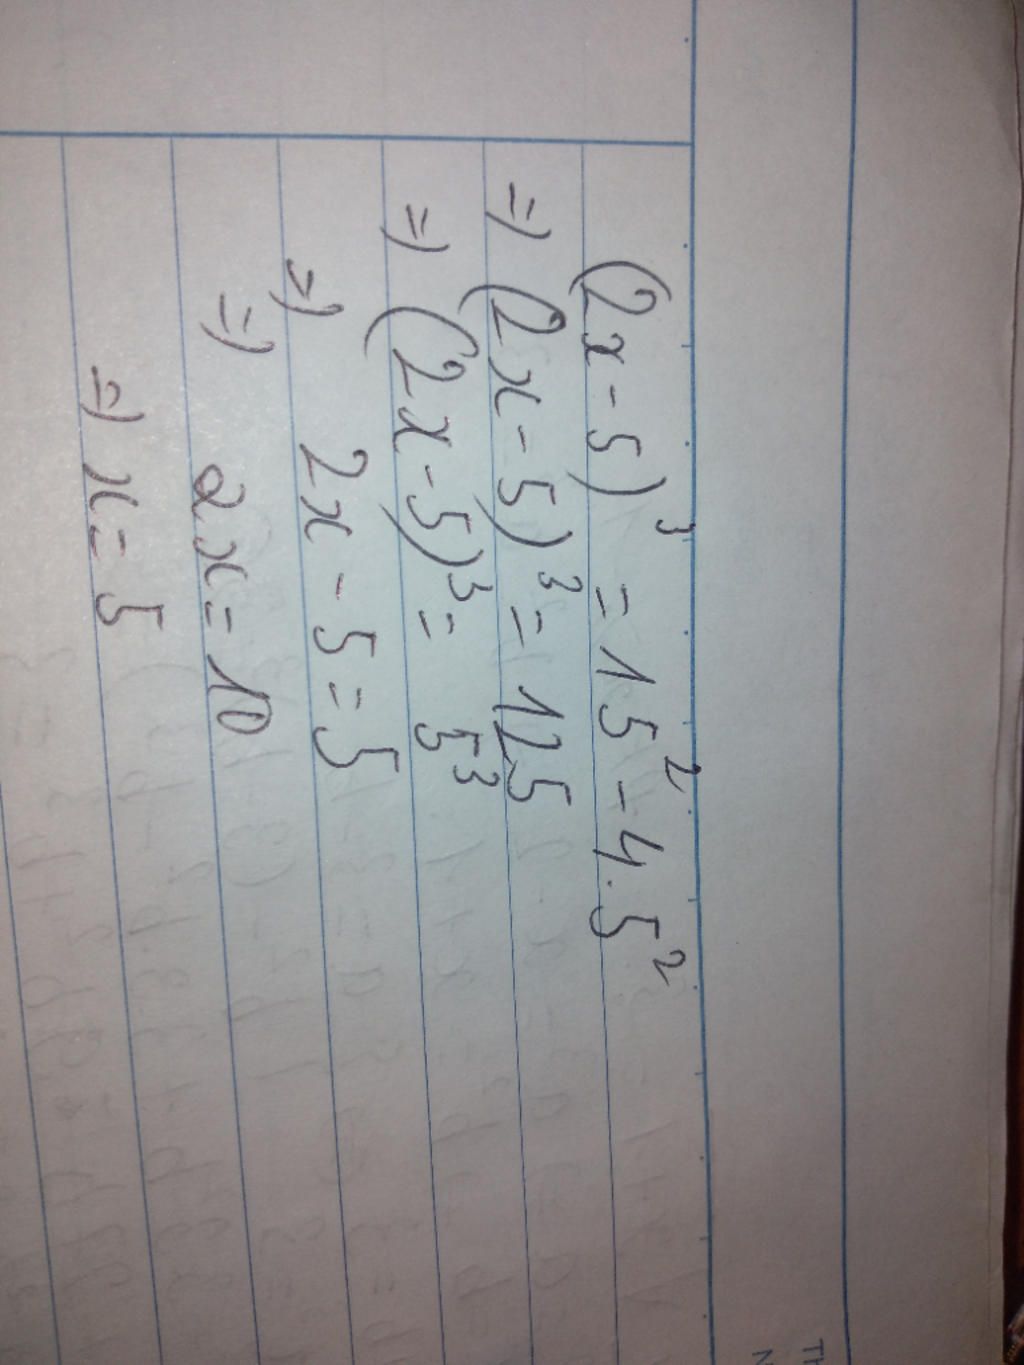 (2x-5)³ = 15² - 4.5²
=) (2x-5)³ = 125
=) (2x-5)³ = 5³
=) 2x - 5 = 5
=) 2x = 10
=) x = 5